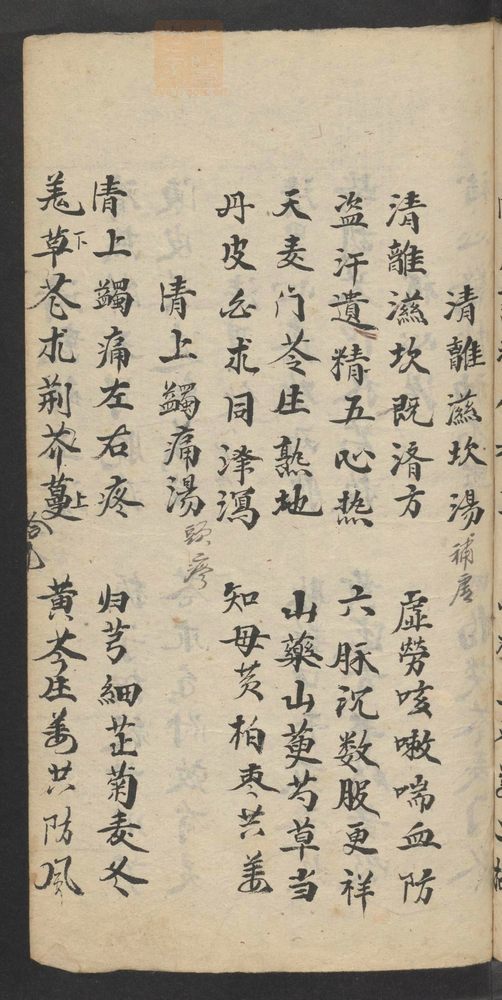 清離滋坎湯 補虛
清離滋坎既濟方 虛勞咳嗽喘血防
盗汗遺精五心热 六脉沉数服更祥
天麦门苓生熟地 山藥山萸芍草当
丹皮白术同澤瀉 知母黄柏枣共姜
清上蠲痛湯 頭疼
清上蠲痛左右疼 归芎細芷菊麦冬
羌草苍术荆芥蔓 黄芩生姜共防風